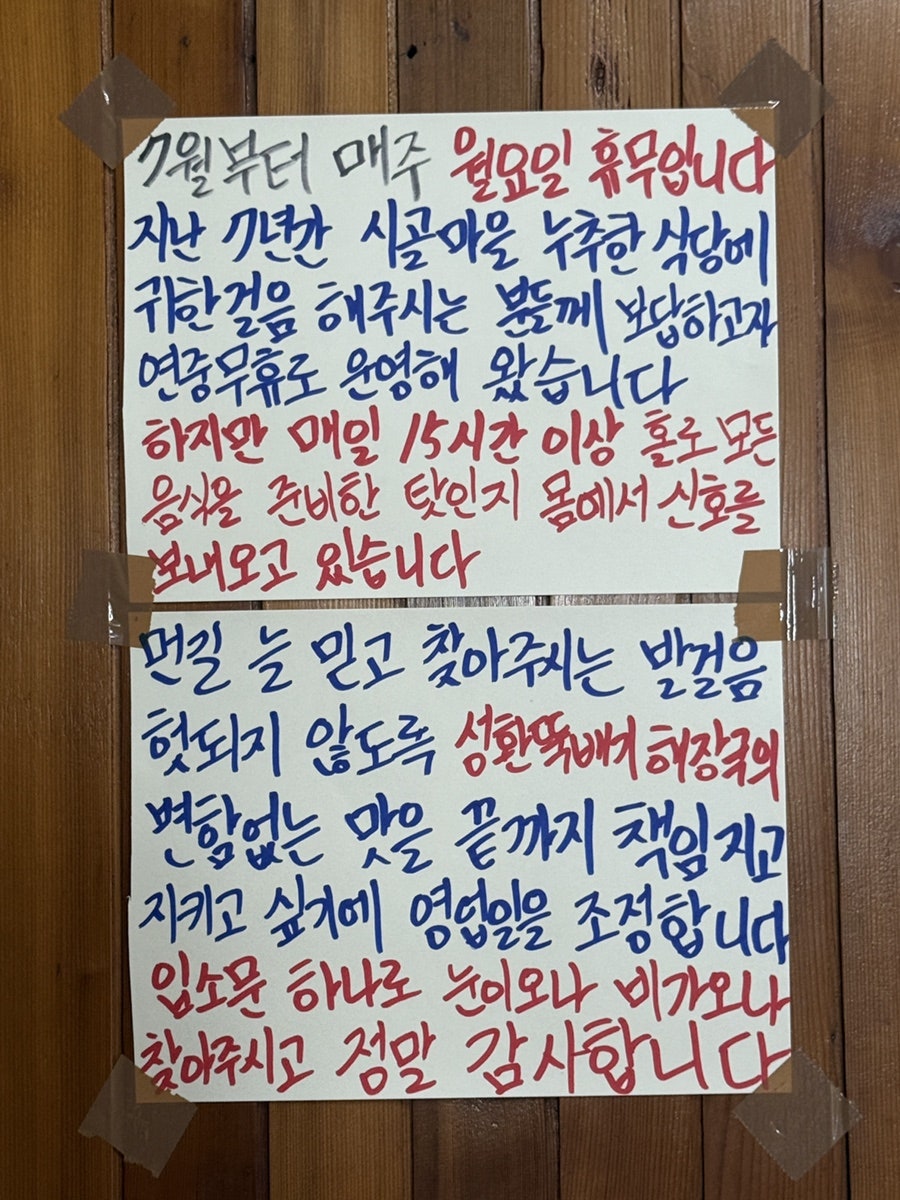 7월부터 매주 월요일 휴무입니다
지난 7년간 시골마을 누추한 식당에
귀한걸음 해주시는 분들께 보답하고자
연중무휴로 운영해 왔습니다
하지만 매일 15시간 이상 홀로 모든
음식을 준비한 탓인지 몸에서 신호를
보내오고 있습니다
먼길 늘 믿고 찾아주시는 발걸음
헛되지 않도록 성환뚝배기 해장국의
변함없는 맛을 끝까지 책임지고
지키고 싶기에 영업일을 조정합니다
입소문 하나로 눈이오나 비가오나
찾아주시고 정말 감사합니다